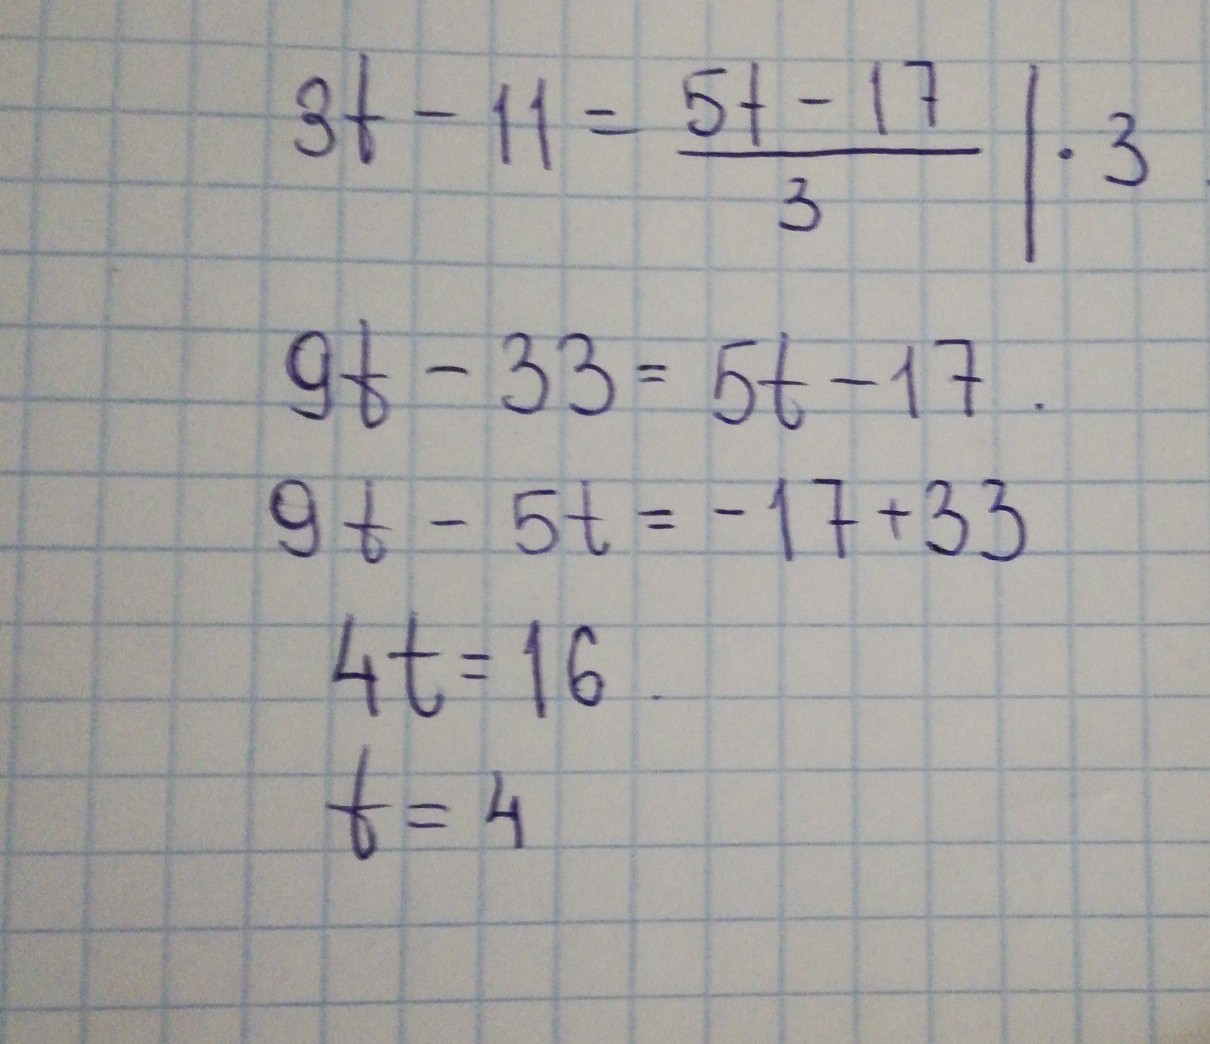 3t - 11 = \frac{5t - 17}{3} | · 3
9t - 33 = 5t - 17 .
9t - 5t = -17 + 33
4t = 16 .
t = 4